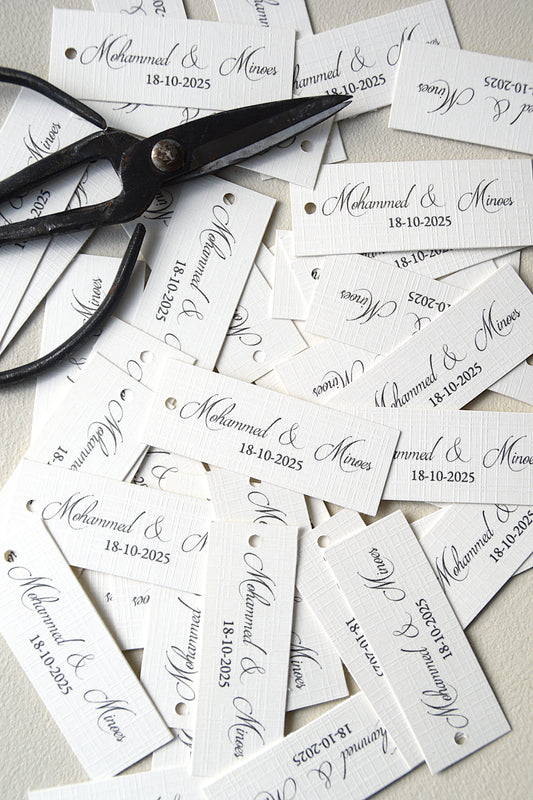 Mohammed & Minoes
18-10-2025
Mohammed & Minoes
18-10-2025
Minoes
18-10-2025
Mohammed & Minoes
18-10-2025
Mohammed & Minoes
18-10-2025
Minoes
18-10-2025
Mohammed & Minoes
18-10-2025
Mohammed & Minoes
18-10-2025
18-10-2025
Mohammed & Minoes
18-10-2025
Mohammed &
18-10-2025
Mohammed & Minoes
18-10-2025
Mohammed & Minoes
18-10-2025
Mohammed & Minoes
18-10-2025
Mohammed &
18-10-2025